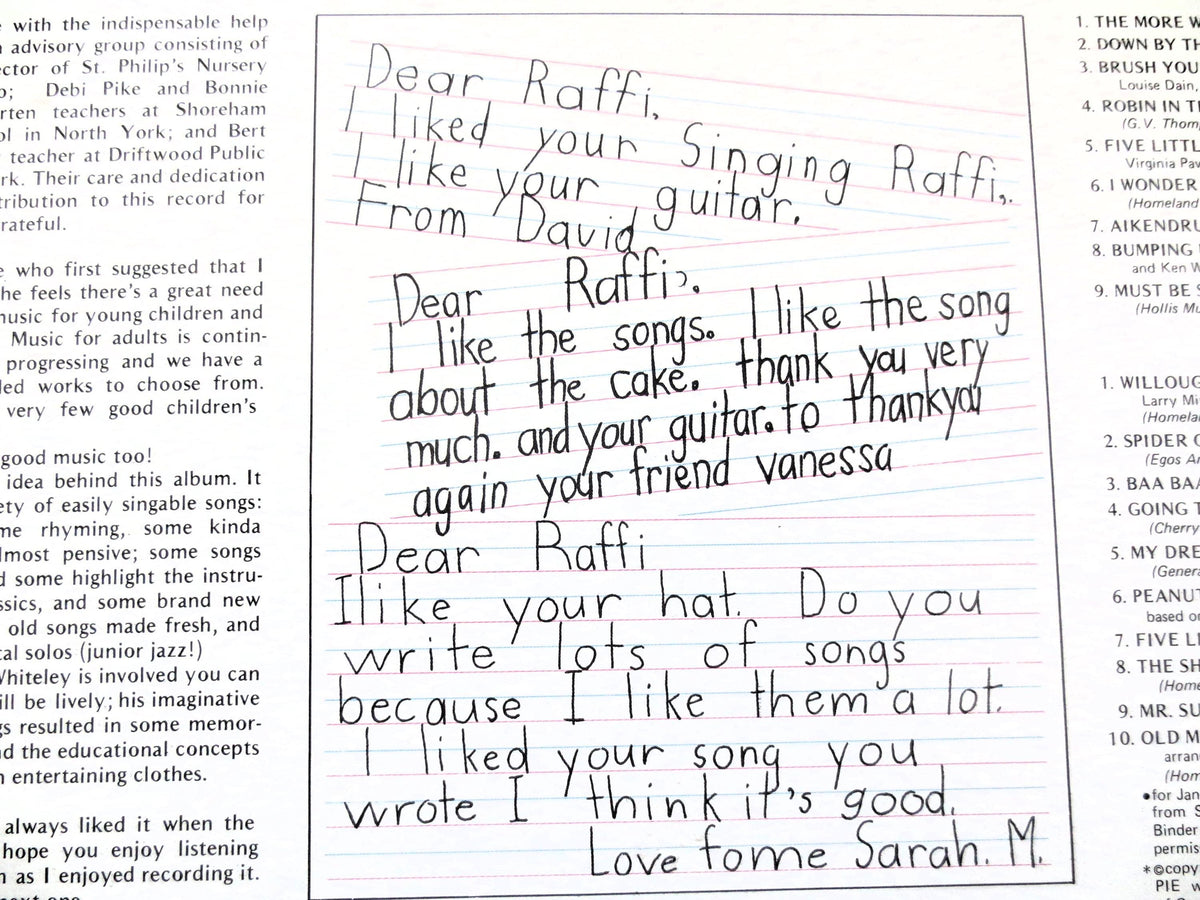 with the indispensable help
advisory group consisting of
of St. Philip's Nursery
Debi Pike and Bonnie
teachers at Shoreham
in North York; and Bert
teacher at Driftwood Public
Their care and dedication
to this record for
who first suggested that I
he feels there's a great need
music for young children and
Music for adults is contin-
progressing and we have a
works to choose from.
very few good children's
good music too!
idea behind this album. It
of easily singable songs:
rhyming, some kinda
pensive; some songs
some highlight the instru-
and some brand new
old songs made fresh, and
solos (junior jazz!)
Whiteley is involved you can
be lively; his imaginative
resulted in some memor-
the educational concepts
entertaining clothes.
always liked it when the
hope you enjoy listening
as I enjoyed recording it.
Dear Raffi,
I liked your Singing Raffi,.
I like your guitar.
From David
Dear Raffi,.
I like the songs. I like the song
about the cake. thank you very
much. and your guitar. to thankyou
again your friend vanessa
Dear Raffi
Ilike your hat. Do you
write lots of songs
because I like them a lot.
I liked your song you
wrote I think it's good.
Love fome Sarah. M.
1. THE MORE
2. DOWN BY
3. BRUSH
Louise Dain,
4. ROBIN IN
(G.V.
5. FIVE
Virginia
6. I WONDER
(Homeland
7.
8. BUMPING
and Ken
9. MUST BE
(Hollis
1.
Larry
2. SPIDER
(Egos
3. BAA
4. GOING
(Cherry
5. MY
6.
based
7. FIVE
8. THE
9. MR.
10. OLD
•for
from
Binder
*©
PIE